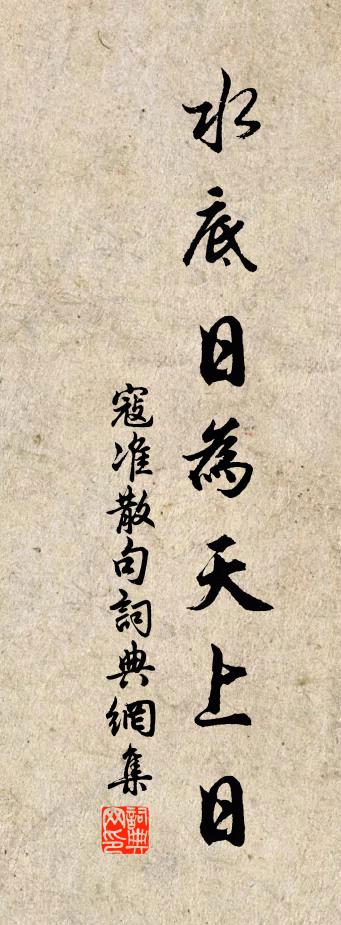 水底日為天上日
寇准散句詞典網集
詞典網印